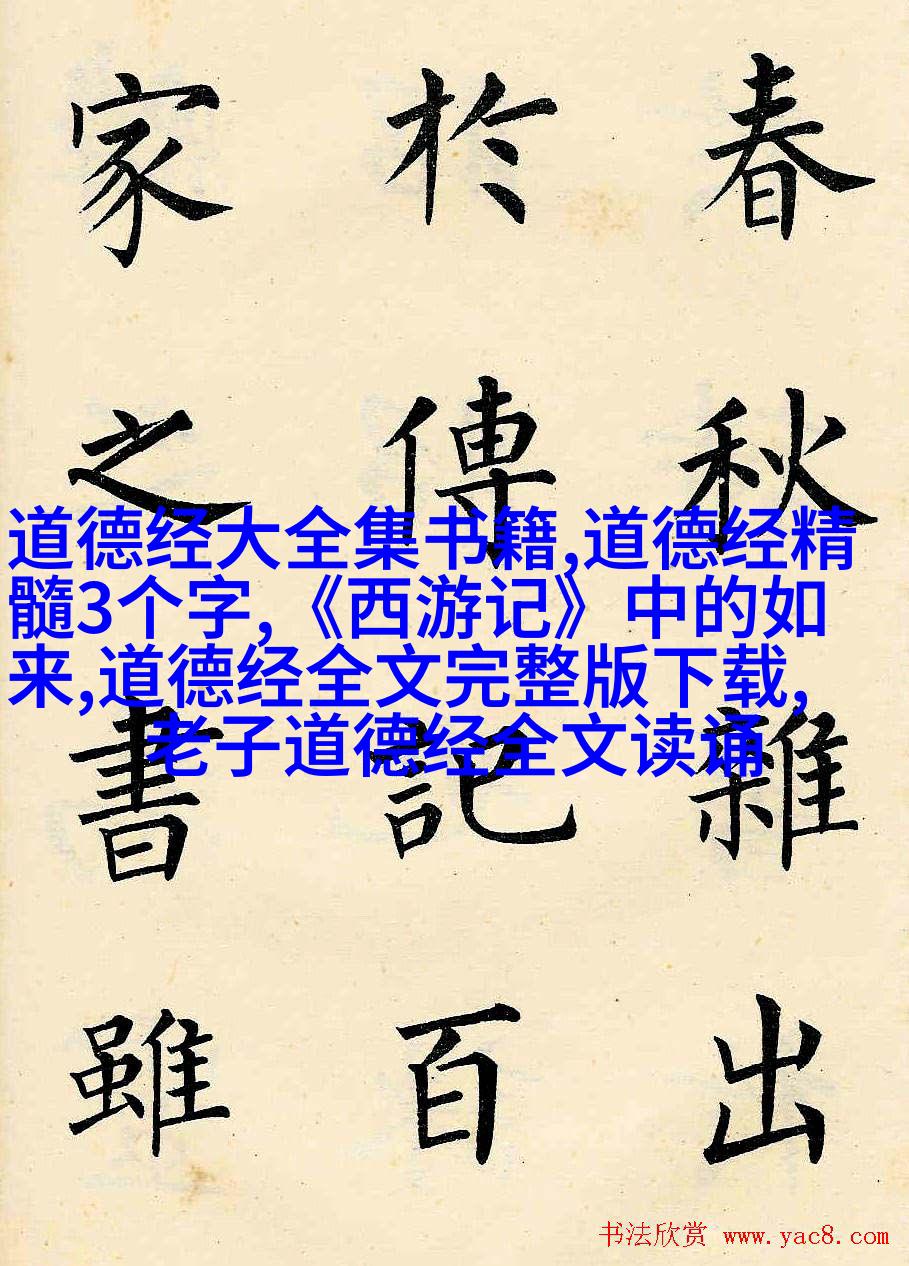 春秋雜出
於傳記百
家之書雖
道德经大全集书籍,道德经精
髓3个字,《西游记》中的如
来,道德经全文完整版下载,
老子道德经全文读诵
书法欣赏 www.yac8.com